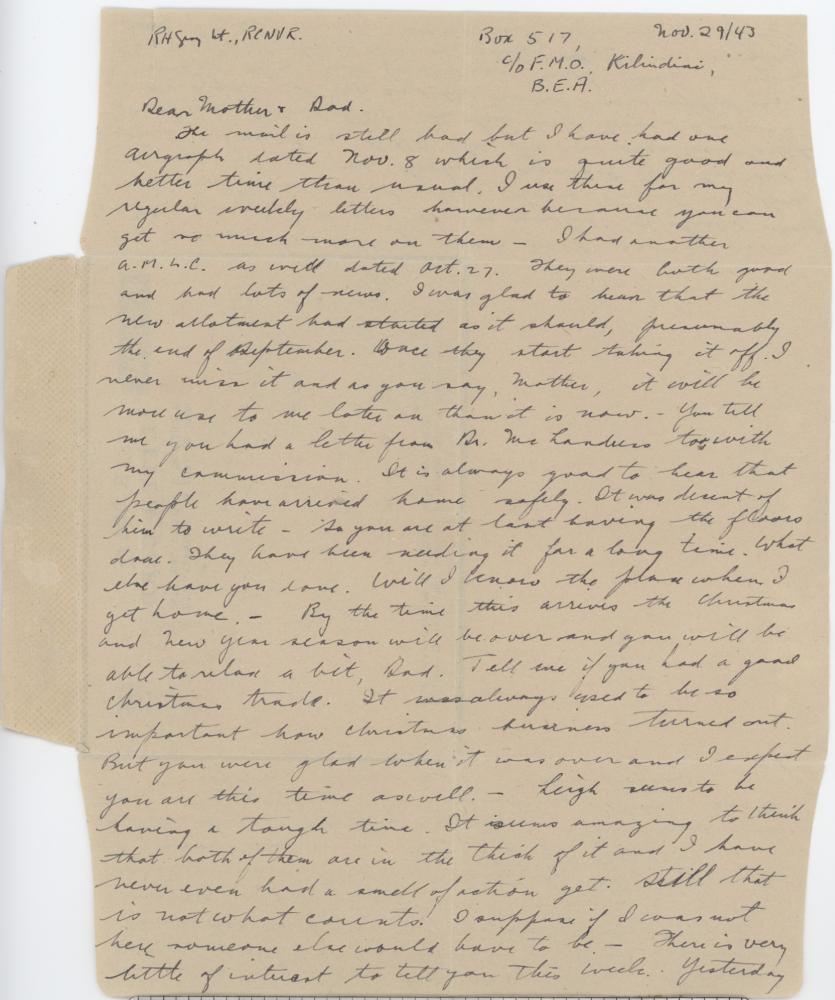 RHGray Lt., RCNVR.
Box 517, Nov. 29/43
c/o F.M.O. Kilindini,
B.E.A.
Dear Mother & Dad.
The mail is still bad but I have had one
airgraph dated Nov. 8 which is quite good and
better time than usual. I use these for my
regular weekly letters however because you can
get so much more on them — I had another
A.M.L.C. as well dated Oct. 27. They were both good
and had lots of news. I was glad to hear that the
new allotment had started as it should, presumably
the end of September. Once they start taking it off I
never miss it and as you say, Mother, it will be
more use to me later on than it is now. — You tell
me you had a letter from Dr. Mc Landress with
my commission. It is always good to hear that
people have arrived home safely. It was decent of
him to write — So you are at last having the floors
done. They have been needing it for a long time. What
else have you done. Will I know the place when I
get home. — By the time this arrives the Christmas
and New Year season will be over and you will be
able to relax a bit, Dad. Tell me if you had a good
Christmas trade. It was always used to be so
important how Christmas business turned out.
But you were glad when it was over and I expect
you are this time as well. — Leigh seems to be
having a tough time. It seems amazing to think
that both of them are in the thick of it and I have
never even had a smell of action yet. Still that
is not what counts. I suppose if I was not
here someone else would have to be — There is very
little of interest to tell you this week. Yesterday